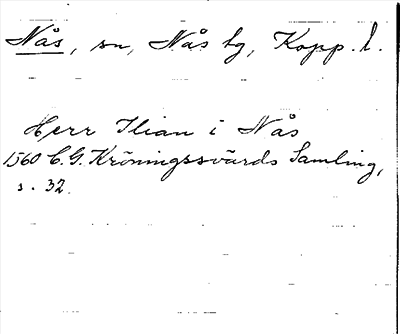 Nås, sn, Nås tg, Kopp. l.
Herr Ilian i Nås
1560 C.G. Kröningssvärds Samling,
s. 32.